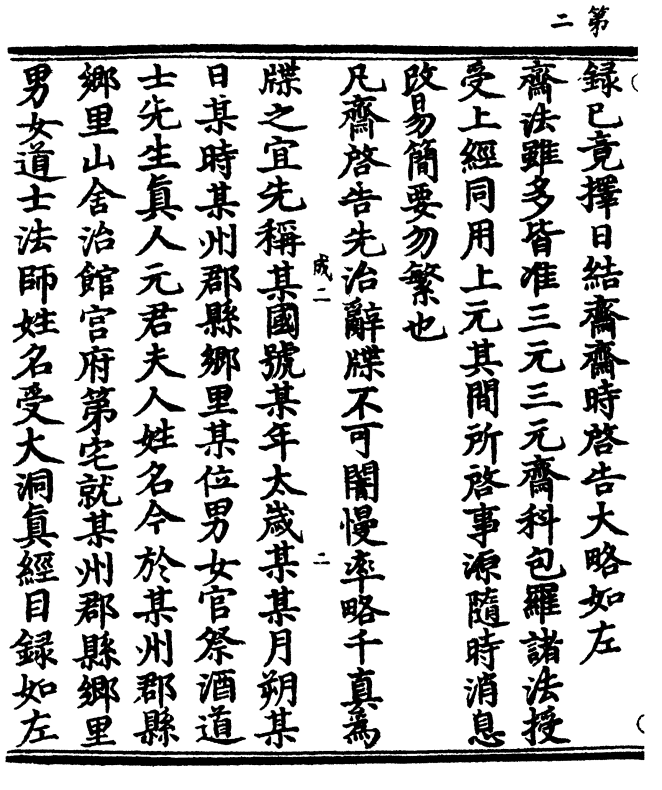 第二
録已竟擇日結齋齋時啓告大略如左
齋法雖多皆准三元三元齋科包羅諸法授
受上經同用上元其間所啓事源隨時消息
改易簡要勿繁也
凡齋啓告先治辭牒不可闇慢率略千真爲
成二 二
牒之宜先稱某國號某年太歲某某月朔某
日某時某州郡縣鄉里某位男女官祭酒道
士先生眞人元君夫人姓名今於某州郡縣
鄉里山舍治館宫府第宅就某州郡縣鄉里
男女道士法師姓名受大洞眞經目録如左